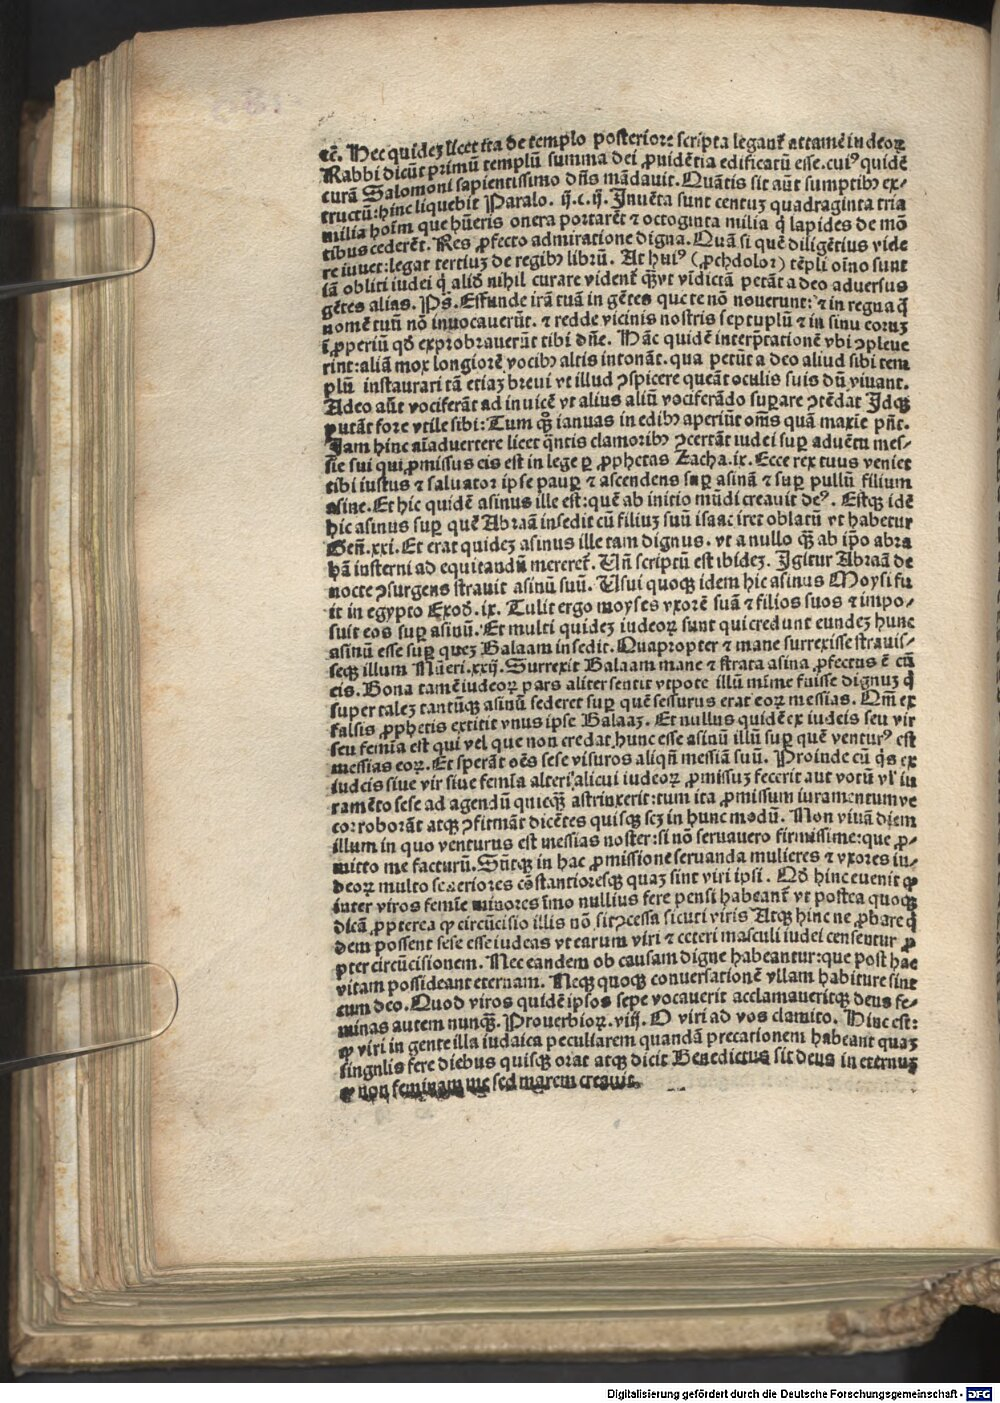 tẽ. Hec quidez licet ita de templo posteriore scripta legant᷑ attamẽ iudeoꝝ
Rabbi dicũt primũ templũ summa dei ꝓuidẽtia edificatũ esse.cuiꝰ quidẽ
curã Salomoni sapientissimo dñs mãdauit. Quãtis sit aũt sumptibꝫ ex⸗
tructũ: hinc liquebit Paralo. ij.c.ij. Inuẽta sunt centuz quadraginta tria
milia hoim̃ que hũeris onera portarẽt ⁊ octoginta milia q̇ lapides de mõ
tibus cederẽt. Res ꝓfecto admiratione digna. Quã si quẽ diligẽtius vide
re iuuet: legat tertiuz de regibꝫ librũ. At huiꝰ (ꝓchdoloꝛ) tẽpli oĩno sunt
iã obliti iudei q̇ aliđ nihil curare vident᷑ qꝫ̃vt vĩdictã petãt a deo aduersus
gẽtes alias. Ps̃. Effunde irã tuã in gẽtes que te nõ nouerunt: ⁊ in regna q̃
nomẽ tuũ nõ inuocauerũt. ⁊ redde vicinis nostris septuplũ ⁊ in sinu eoruz
ĩꝓperiũ qđ exprobrauerũt tibi dñe. Hãc quidẽ interp̃tationẽ vbi ꝯpleue
rint: aliã mox longiorẽ vocibꝫ altis intonãt. qua petũt a deo aliud sibi tem
plũ instaurari tã etiaz breui vt illud ꝯspicere queãt oculis suis dũ viuant.
Adeo aũt vociferãt ad inuicẽ vt alius aliũ vociferãdo suꝑare ꝯtẽdat Idqꝫ
putãt fore vtile sibi: Tum qꝫ ianuas in edibꝫ aperiũt om̃s quã maxĩe pñt.
Iam hinc aĩaduertere licet q̃ntis clamoribꝫ ꝯcertãt iudei suꝑ aduẽtu mes⸗
sie sui qui ꝓmissus eis est in lege ꝑ ꝓphetas Zacha.ix. Ecce rex tuus veniet
tibi iustus ⁊ saluator ipse pauꝑ ⁊ ascendens suꝑ asinã ⁊ suꝑ pullũ filium
asine. Et hic quidẽ asinus ille est: quẽ ab initio mũdi creauit deꝰ. Estqꝫ idẽ
hic asinus suꝑ quẽ Abraã insedit cũ filiuz suũ isaac iret oblatũ vt habetur
Geñ.xxi. Et erat quidez asinus ille tam dignus. vt a nullo qꝫ̃ ab ip̃o abra
hã insterni ad equitandũ meреret᷑. Vñ scriptũ est ibidez. Igitur Abraã de
nocte ꝯsurgens strauit asinũ suũ. Vsui quoqꝫ idem hic asinus Moysi fu
it in egypto Exođ.ix. Tulit ergo moyses vxorẽ suã ⁊ filios suos ⁊ impo⸗
suit eos suꝑ asinũ. Et multi quidez iudeoꝝ sunt qui credunt eundez hunc
asinũ esse suꝑ quez Balaam insedit. Quapropter ⁊ mane surrexisse strauis⸗
seqꝫ illum Nũeri.xxij. Surrexit Balaam mane ⁊ strata asina ꝓfectus ẽ cũ
eis. Bona tamẽ iudeoꝝ pars aliter sentit vtpote illũ mĩme fuisse dignuz q̇
super talez tantũqꝫ asinũ sederet suꝑ quẽ sessurus erat eoꝝ messias. Qm̃ ex
falsis ꝓphetis extitit vnus ipse Balaaz. Et nullus quidẽ ex iudeis seu vir
seu femĩa est qui vel que non credat hunc esse asinũ illũ suꝑ quẽ venturꝰ est
messias eoꝝ. Et sperãt oẽs sese visuros aliqñ messiã suũ. Proinde cũ q̇s ex
iudeis siue vir siue femĩa alteri alicui iudeoꝝ ꝓmissuz fecerit aut votũ vĺ iu
ramẽto sese ad agendũ quicqꝫ̃ astrinxerit: tum ita ꝓmissum iuramentumve
corroborãt atqꝫ ꝯfirmãt dicẽtes quisqꝫ scz in hunc modũ. Non viuã diem
illum in quo venturus est messias noster: si nõ seruauero firmissime: que ꝓ⸗
mitto me facturũ. Sũtqꝫ in hac ꝓmissione seruanda mulieres ⁊ vxores iu⸗
deoꝝ multo seueriores cõstantioresqꝫ quaz sint viri ipsi. Qđ hinc euenit ꝙ
inter viros femĩe minores ĩmo nullius fere pensi habeant᷑ vt postea quoqꝫ
dicã ꝓpterea ꝙ circũcisio illis nõ sit ꝯcessa sicuti viris Atqꝫ hinc ne ꝓbare q̇
dem possent sese esse iudeas vt earum viri ⁊ ceteri masculi iudei censentur ꝓ
pter circũcisionem. Nec eandem ob causam digne habeantur: que post hac
vitam possideant eternam. Necqꝫ quoqꝫ conuersationẽ vllam habiture sint
cum deo. Quod viros quidẽ ipsos sepe vocauerit acclamaueritqꝫ deus fe⸗
minas autem nunqꝫ̃. Prouerbioꝝ.viij. O viri ad vos clamito. Hinc est:
ꝙ viri in gente illa iudaica peculiarem quandã precationem habeant quaz
singulis fere diebus quisqꝫ orat atqꝫ dicit Benedictus sit deus in eternuz
ꝙ non feminam me sed marem creauit.
Digitalisierung gefördert durch die Deutsche Forschungsgemeinschaft - DFG